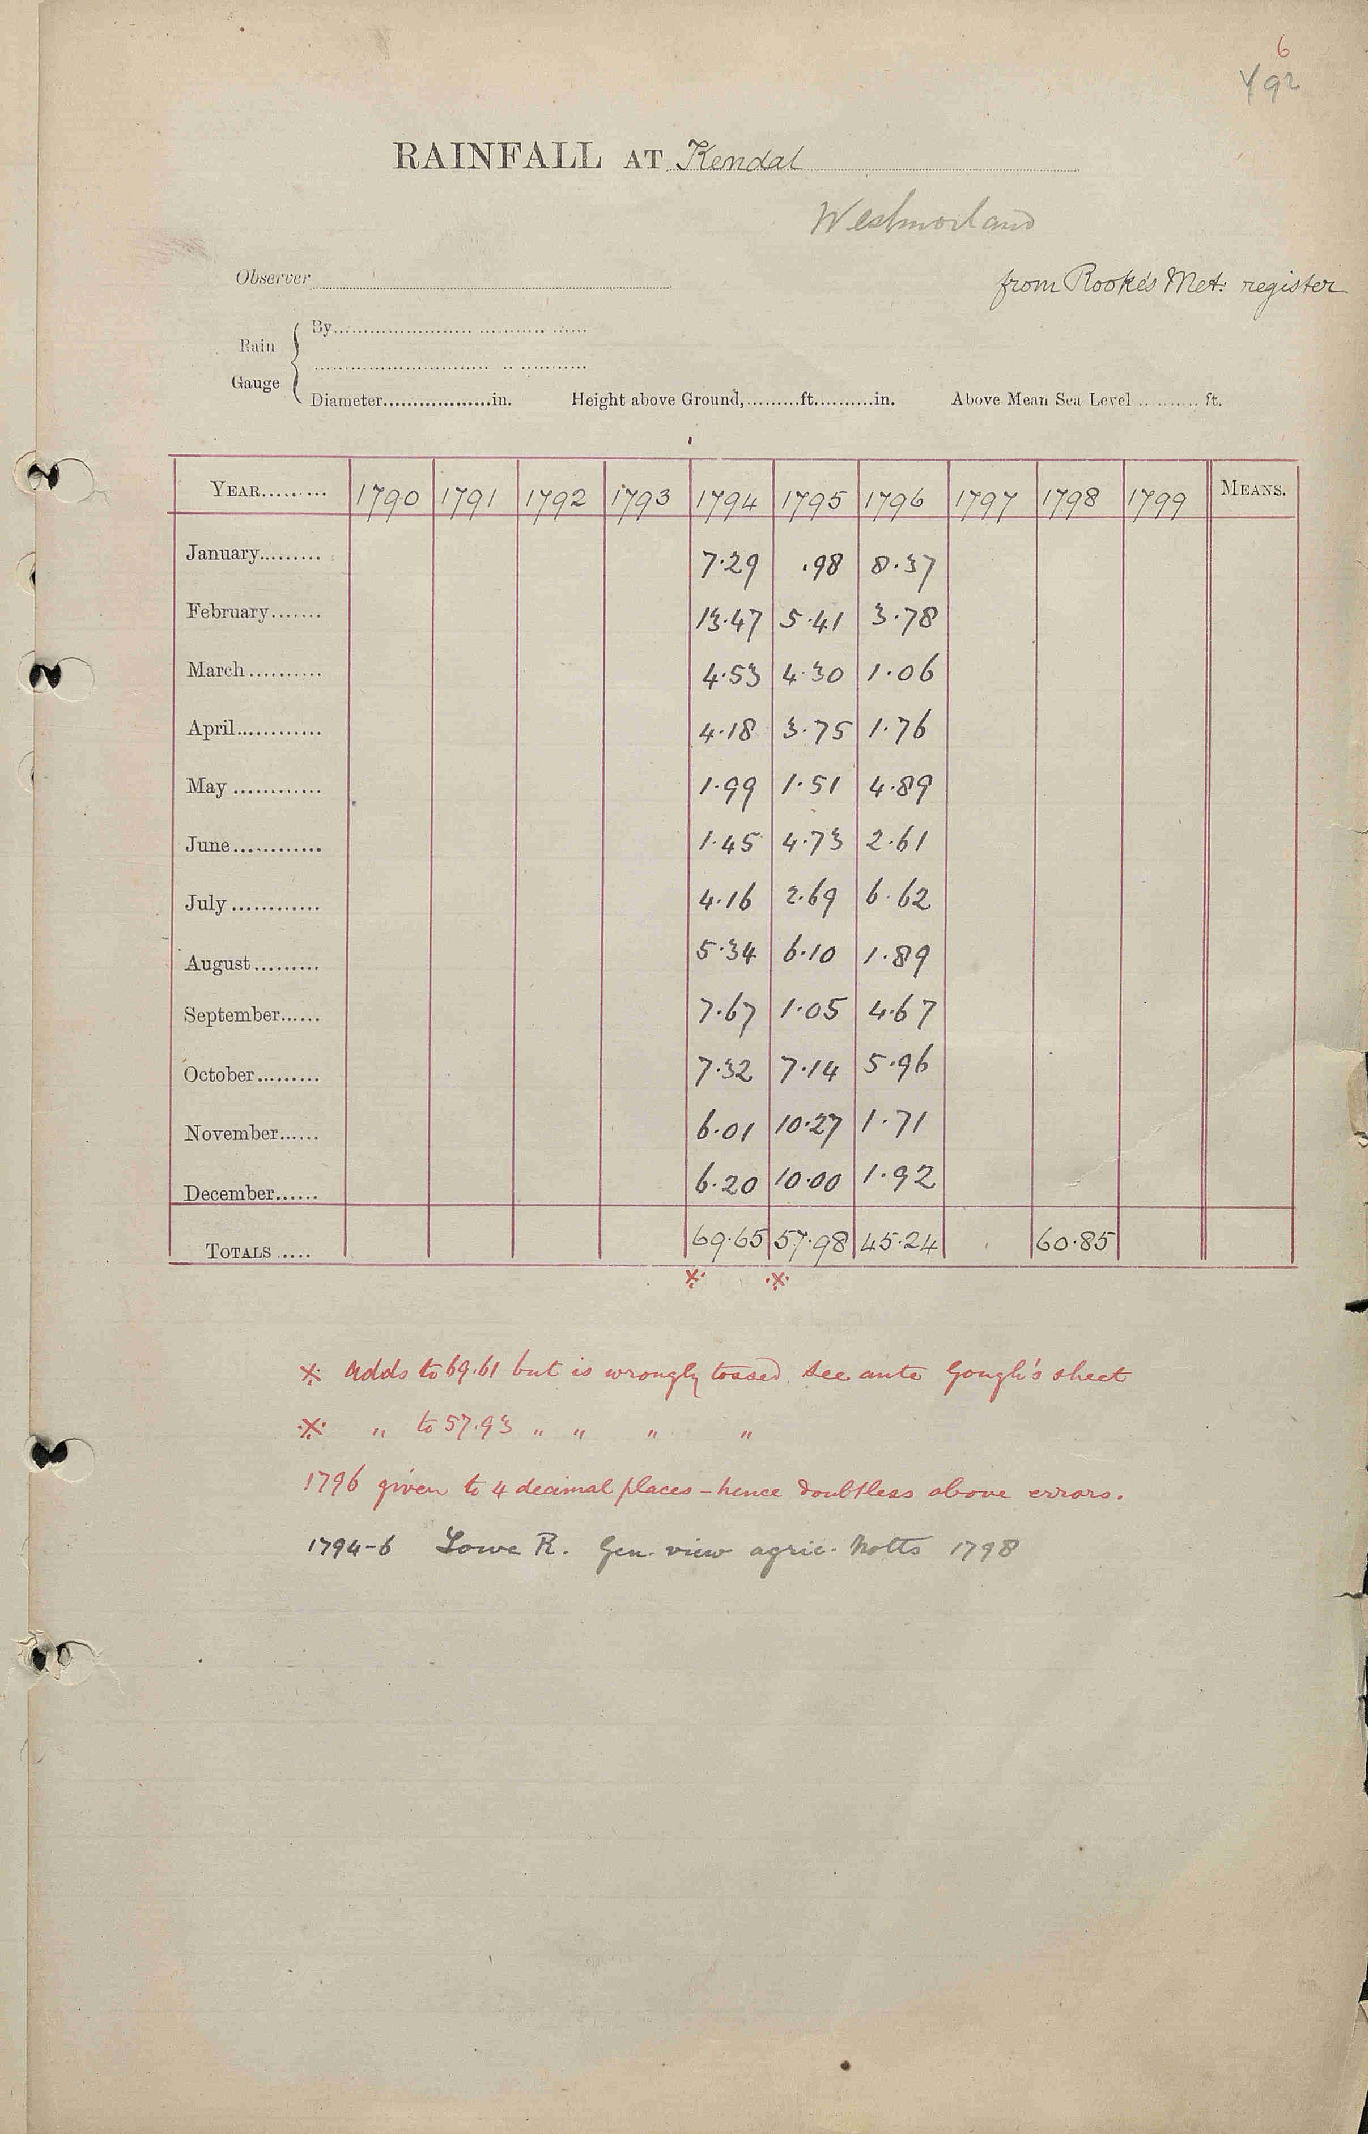 6
Y92
RAINFALL AT Kendal
Westmorland
Observer
from Rooke's Met: register
Rain Gauge { By
Diameter..................in. Height above Ground,.........ft..........in. Above Mean Sea Level .......... ft.
YEAR......... 1790 1791 1792 1793 1794 1795 1796 1797 1798 1799 MEANS.
January......... 7.29 .98 8.37
February....... 13.47 5.41 3.78
March.......... 4.53 4.30 1.06
April............ 4.18 3.75 1.76
May ............ 1.99 1.51 4.89
June............ 1.45 4.73 2.61
July ............ 4.16 2.69 6.62
August......... 5.34 6.10 1.89
September...... 7.67 1.05 4.67
October......... 7.32 7.14 5.96
November...... 6.01 10.27 1.71
December...... 6.20 10.00 1.92
TOTALS ..... 69.65 57.98 45.24 60.85
※ ※
※ adds to 69.61 but is wrongly tossed see ante Gough's sheet
※ " to 57.93 " " " "
1796 given to 4 decimal places - hence doubtless above errors.
1794-6 Lowe R. Gen. view agric. Notts 1798